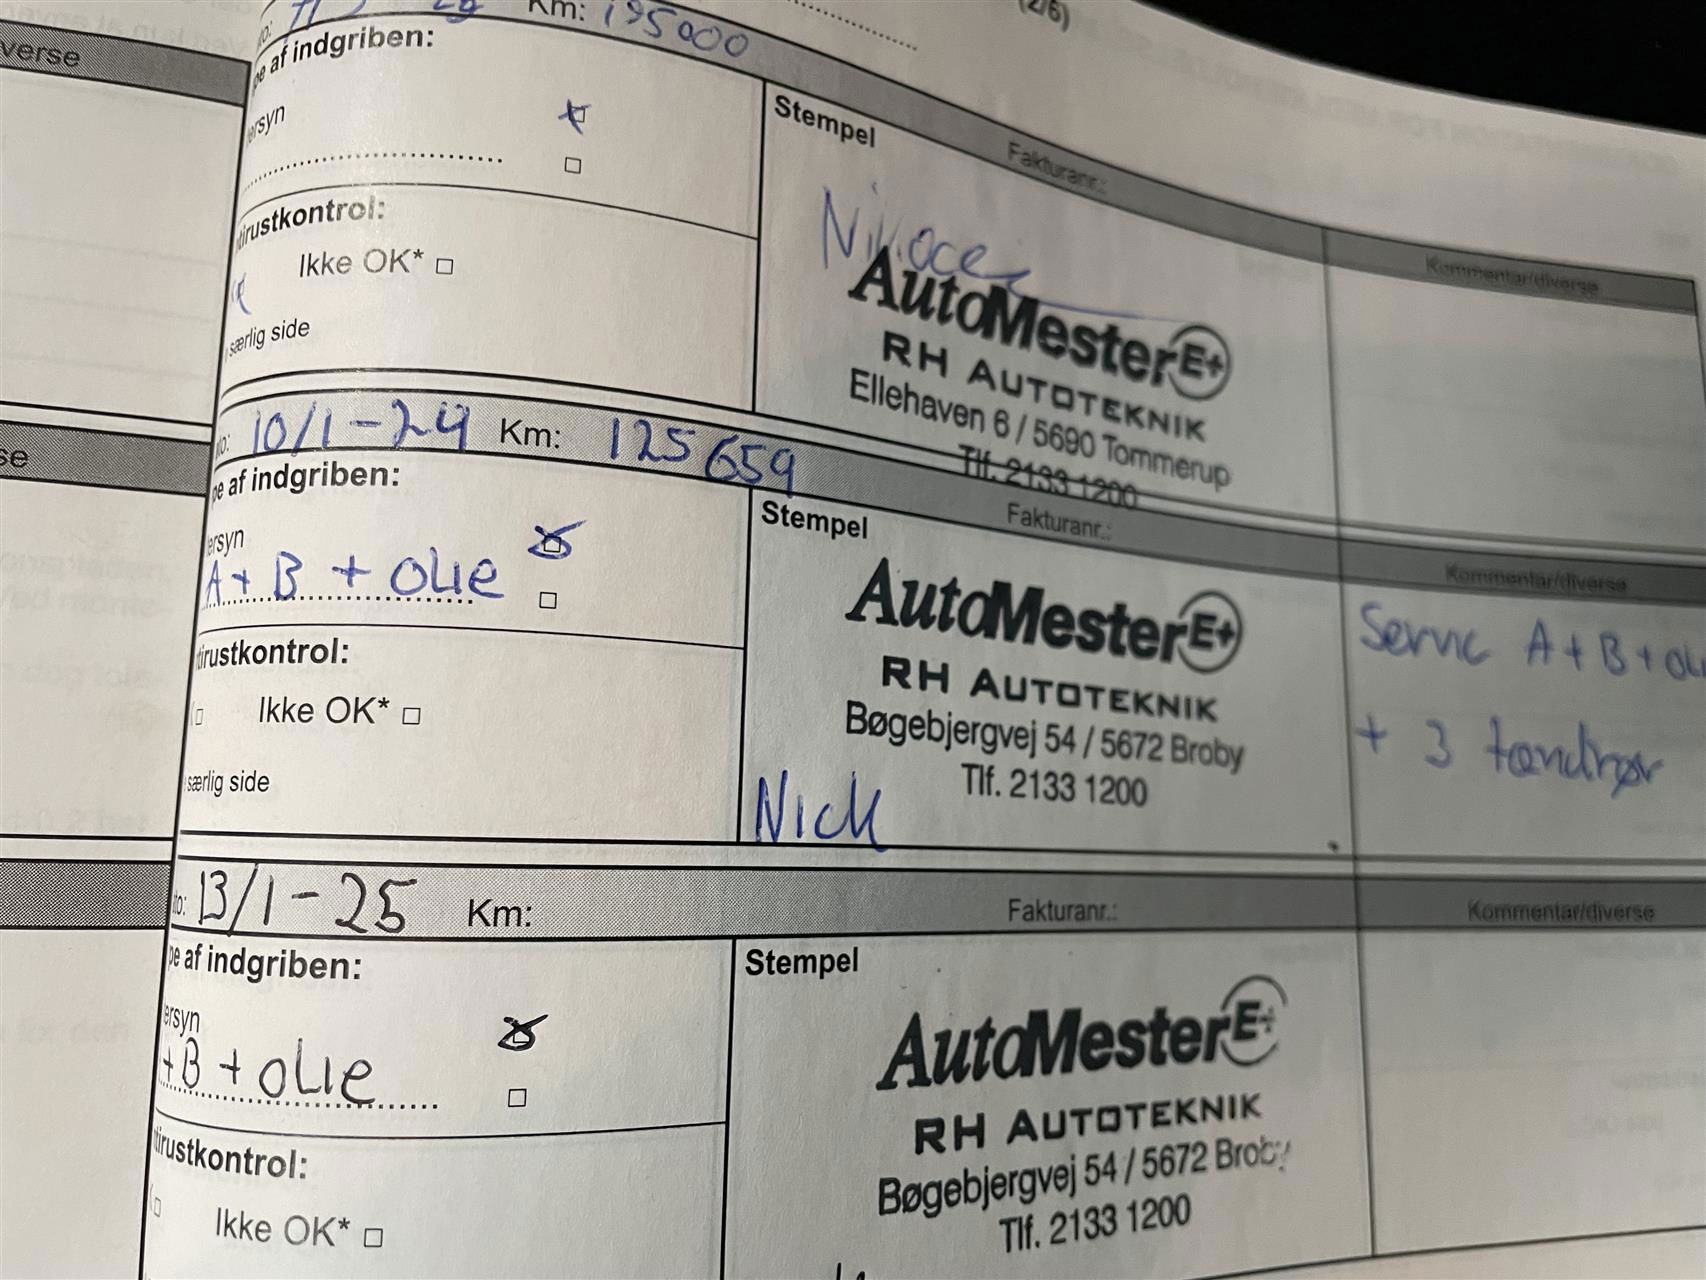 verse
Km: 195000
(2/6)
pe af indgriben:
ersyn
Stempel
Fakturanr.:
Kommentar/diverse
tirustkontrol:
Ikke OK*
særlig side
AutoMester E+
RH AUTOTEKNIK
Ellehaven 6 / 5690 Tommerup
Tlf. 2133 1200
se
to: 10/1-24 Km: 125659
Fakturanr.:
Kommentar/diverse
pe af indgriben:
Stempel
ersyn
A + B + OLIE
tirustkontrol:
Ikke OK*
særlig side
AutoMester E+
RH AUTOTEKNIK
Bøgebjergvej 54 / 5672 Broby
Tlf. 2133 1200
Nick
Servic A + B + OLI
+ 3 tændrør
to: 13/1-25 Km:
Fakturanr.:
Kommentar/diverse
pe af indgriben:
Stempel
ersyn
+B + OLIE
tirustkontrol:
Ikke OK*
AutoMester E+
RH AUTOTEKNIK
Bøgebjergvej 54 / 5672 Broby
Tlf. 2133 1200